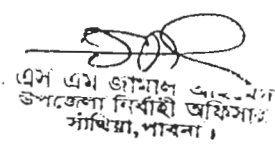 এস এম জামাল
উপজেলা নির্বাহী অফিসার
সাঁথিয়া, পাবনা।